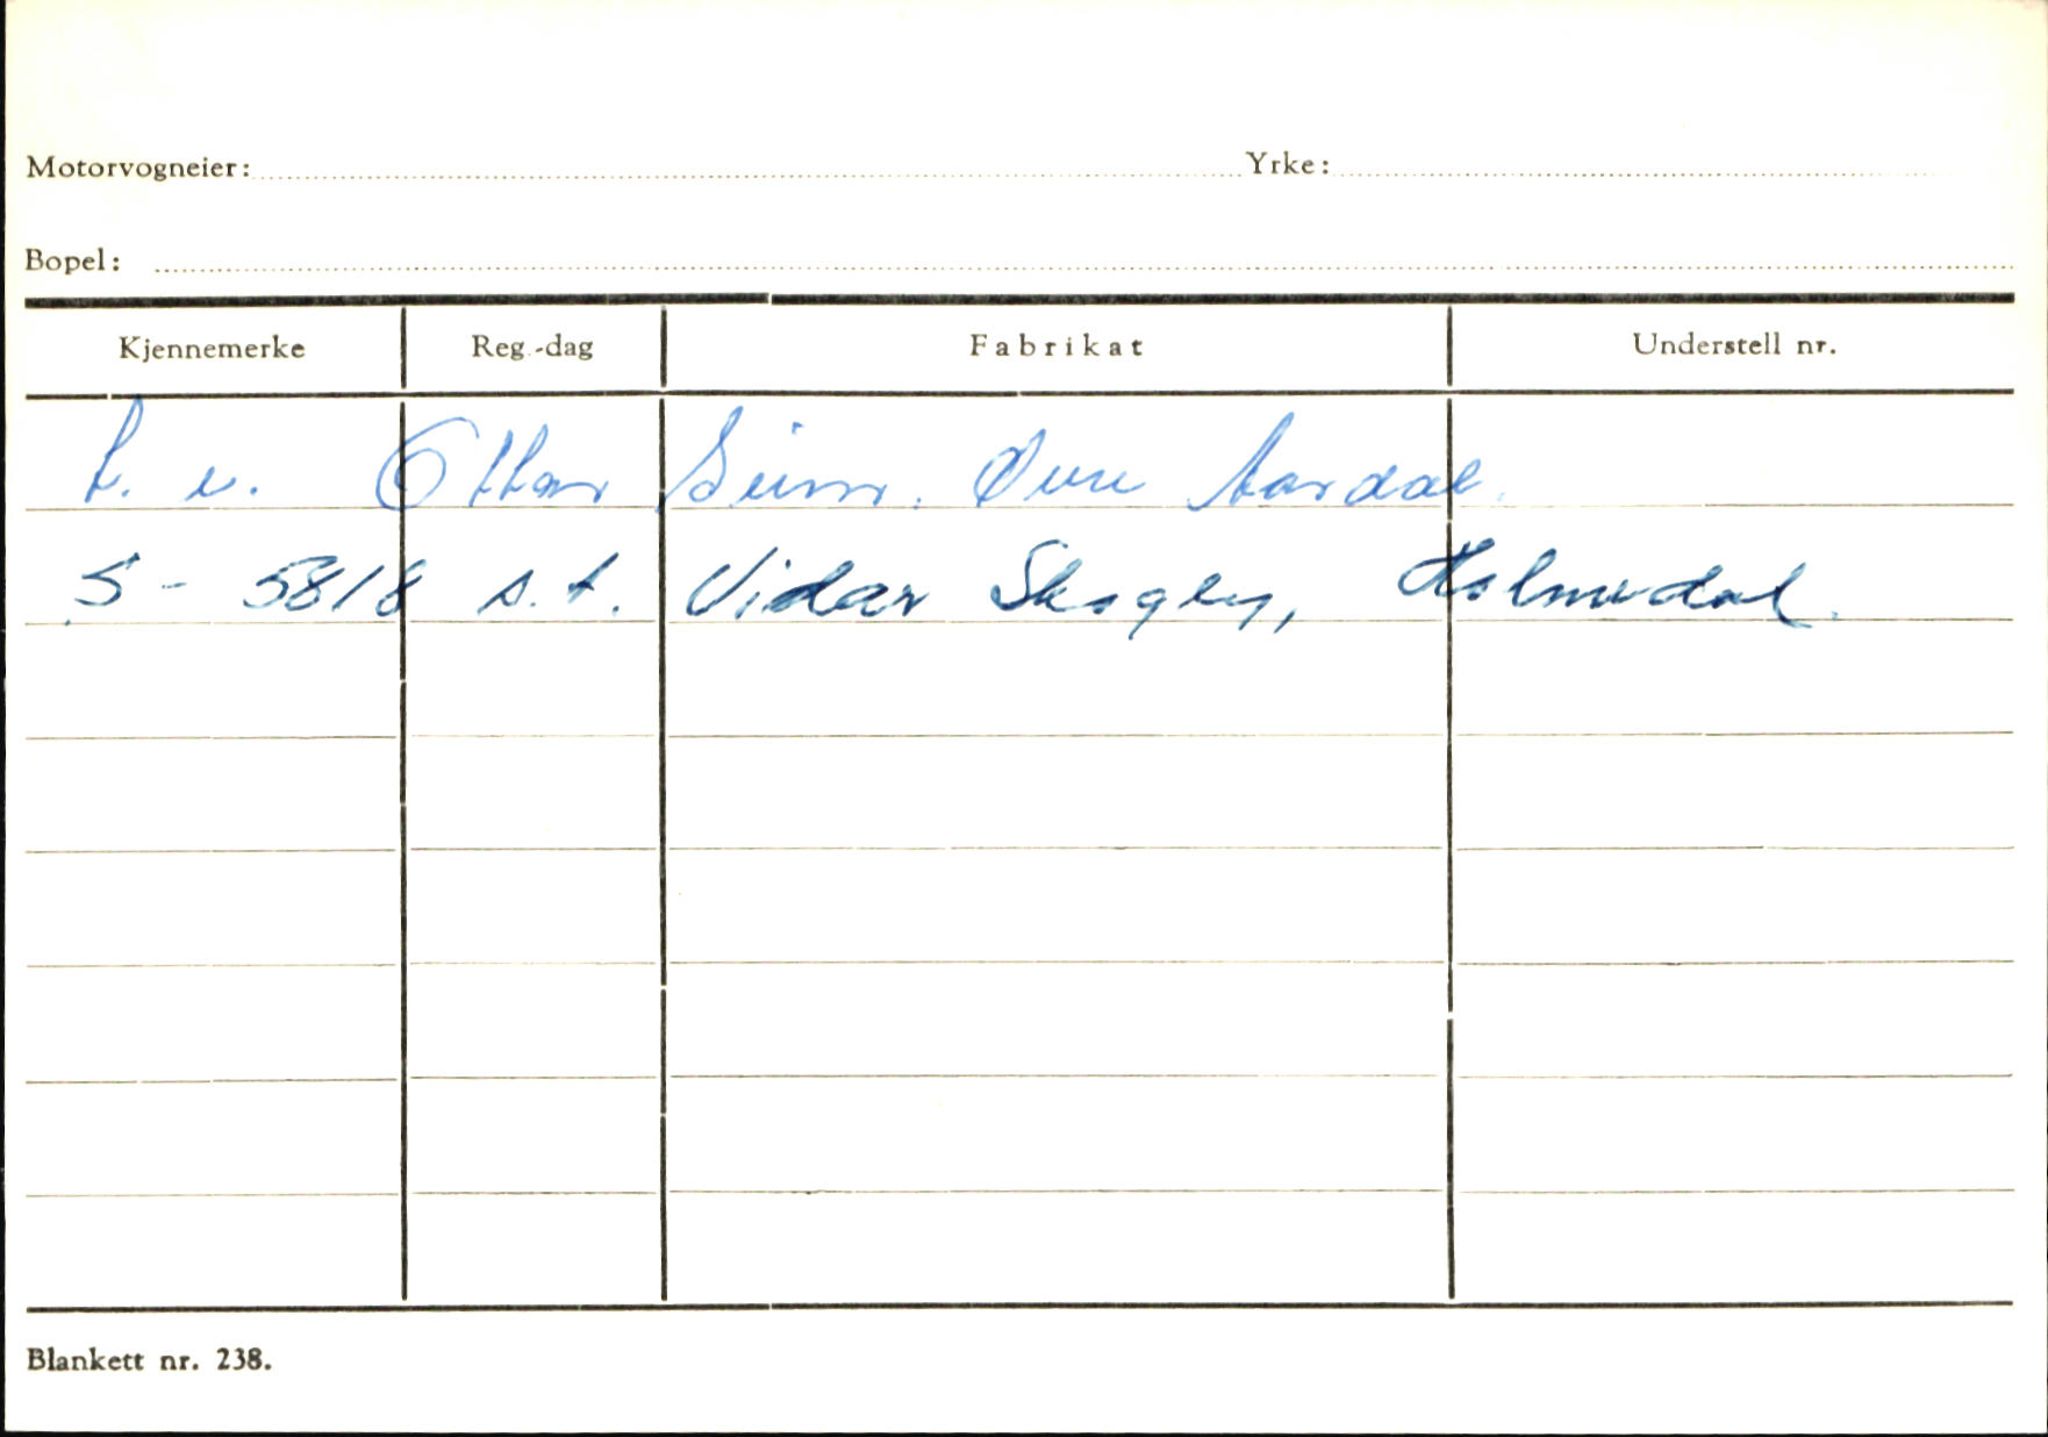 Motorvogneier: Yrke:
Bopel:
Kjennemerke Reg.-dag Fabrikat Understell nr.
Ottar Seim. Øvre Aardal.
S - 5818 s.t. Vidar Skogly, Holmedal.
Blankett nr. 238.